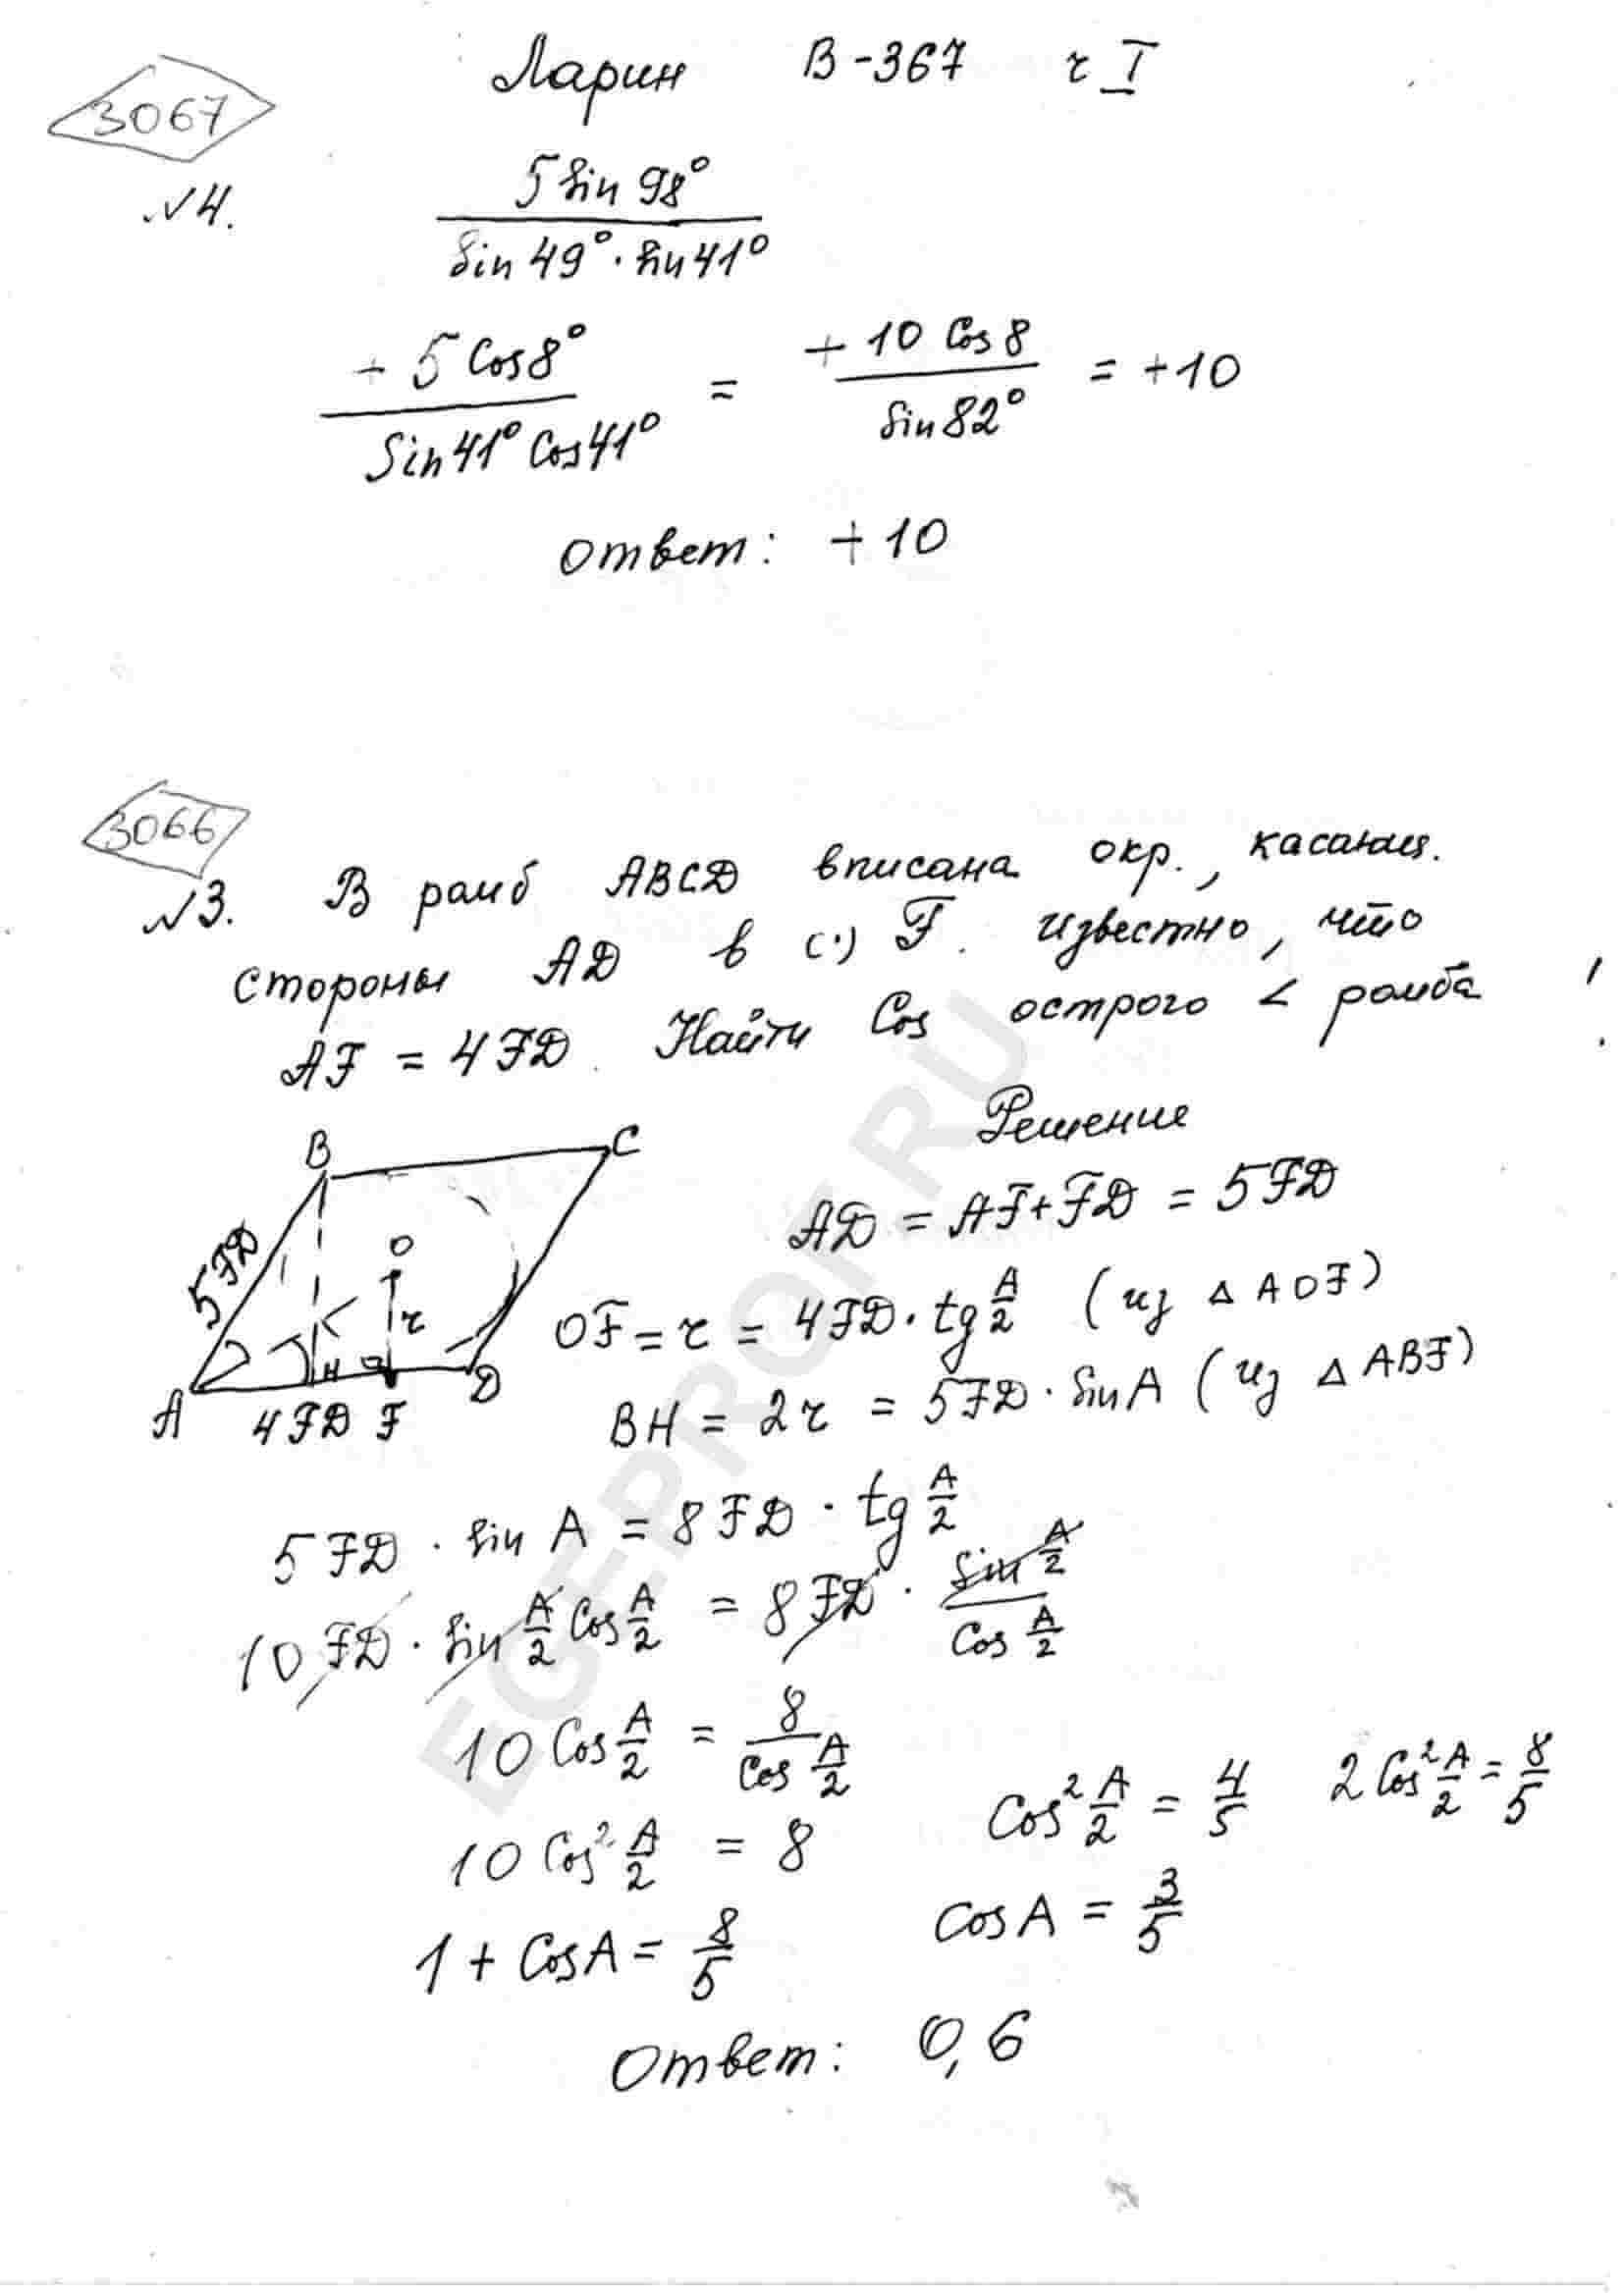 Ларин В-367 ч I
3067
№4. 5 sin 98° / sin 49° · sin 41°
+ 5 cos 8° / sin 41° cos 41° = + 10 cos 8 / sin 82° = +10
Ответ: +10
3066
№3. В ромб ABCD вписана окр., касающ.
стороны AD в (·) F. Известно, что
AF = 4FD. Найти cos острого < ромба !
Решение
B C
AD = AF+FD = 5FD
5FD O r
OF = r = 4FD · tg A/2 (из △ AOF)
A 4FD H F D
BH = 2r = 5FD · sin A (из △ ABF)
5FD · sin A = 8FD · tg A/2
10 FD · sin A/2 cos A/2 = 8 FD · sin A/2 / cos A/2
10 cos A/2 = 8 / cos A/2
10 cos² A/2 = 8 cos² A/2 = 4/5 2 cos² A/2 = 8/5
1 + cos A = 8/5 cos A = 3/5
Ответ: 0,6
EGEPROF.RU